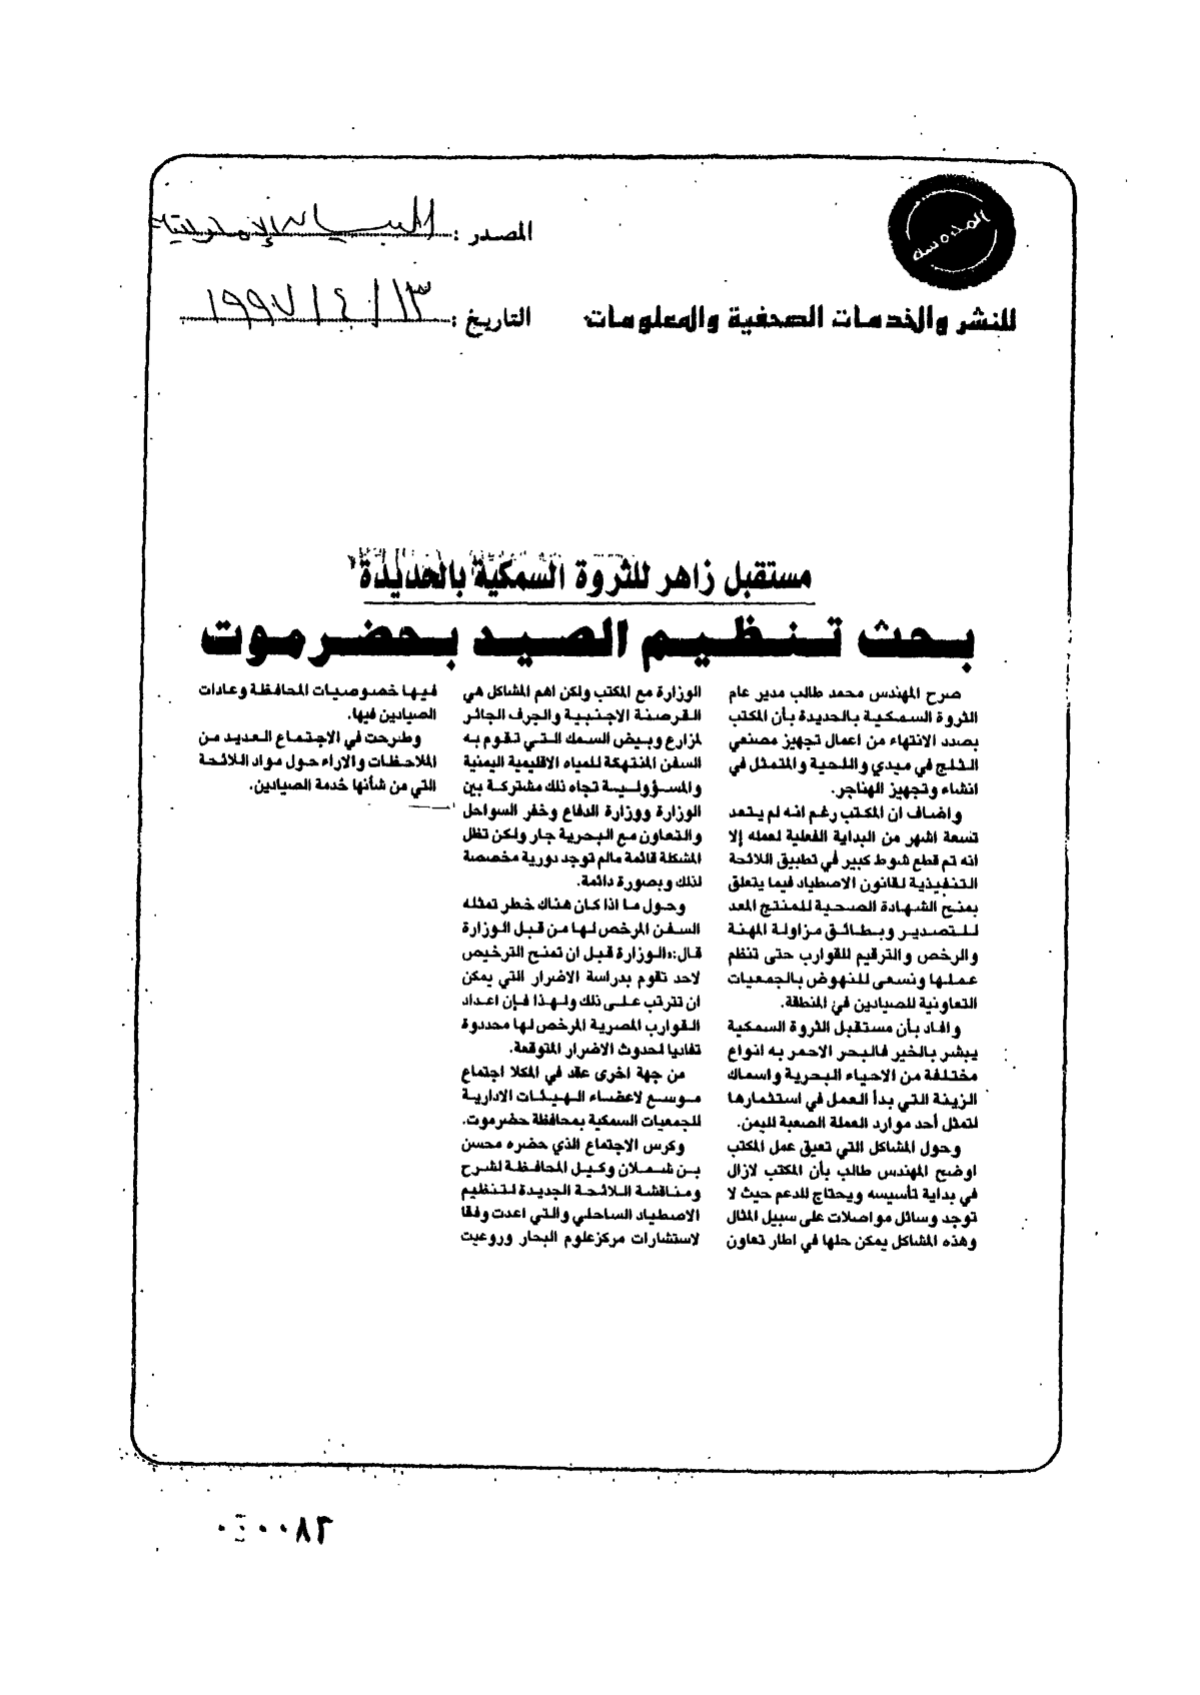 المدوسه
المصدر : البيان الإماراتية
للنشر والخدمات الصحفية والمعلومات
التاريخ : ١٣ / ٤ / ١٩٩٧
مستقبل زاهر للثروة السمكية بالحديدة
بحث تنظيم الصيد بحضرموت
صرح المهندس محمد طالب مدير عام
الثروة السمكية بالحديدة بأن المكتب
بصدد الانتهاء من اعمال تجهيز مصنعي
الثلج في ميدي واللحية والمتمثل في
انشاء وتجهيز الهناجر.
واضاف ان المكتب رغم انه لم يتعد
تسعة اشهر من البداية الفعلية لعمله إلا
انه تم قطع شوط كبير في تطبيق اللائحة
التنفيذية لقانون الاصطياد فيما يتعلق
بمنح الشهادة الصحية للمنتج المعد
للتصدير وبطائق مزاولة المهنة
والرخص والترقيم للقوارب حتى تنظم
عملها ونسعى للنهوض بالجمعيات
التعاونية للصيادين في المنطقة.
وافاد بأن مستقبل الثروة السمكية
يبشر بالخير فالبحر الاحمر به انواع
مختلفة من الاحياء البحرية واسماك
الزينة التي بدأ العمل في استثمارها
لتمثل أحد موارد العملة الصعبة لليمن.
وحول المشاكل التي تعيق عمل المكتب
اوضح المهندس طالب بأن المكتب لازال
في بداية تأسيسه ويحتاج للدعم حيث لا
توجد وسائل مواصلات على سبيل المثال
وهذه المشاكل يمكن حلها في اطار تعاون
الوزارة مع المكتب ولكن اهم المشاكل هي
القرصنة الاجنبية والجرف الجائر
لمزارع وبيض السمك التي تقوم به
السفن المنتهكة للمياه الاقليمية اليمنية
والمسؤولية تجاه ذلك مشتركة بين
الوزارة ووزارة الدفاع وخفر السواحل
والتعاون مع البحرية جار ولكن تظل
المشكلة قائمة مالم توجد دورية مخصصة
لذلك وبصورة دائمة.
وحول ما اذا كان هناك خطر تمثله
السفن المرخص لها من قبل الوزارة
قال: «الوزارة قبل ان تمنح الترخيص
لاحد تقوم بدراسة الاضرار التي يمكن
ان تترتب على ذلك ولهذا فإن اعداد
القوارب المصرية المرخص لها محددة
تفاديا لحدوث الاضرار المتوقعة.
من جهة اخرى عقد في المكلا اجتماع
موسع لاعضاء الهيئات الادارية
للجمعيات السمكية بمحافظة حضرموت.
وكرس الاجتماع الذي حضره محسن
بن شملان وكيل المحافظة لشرح
ومناقشة اللائحة الجديدة لتنظيم
الاصطياد الساحلي والتي اعدت وفقا
لاستشارات مركز علوم البحار وروعيت
فيها خصوصيات المحافظة وعادات
الصيادين فيها.
وطرحت في الاجتماع العديد من
الملاحظات والاراء حول مواد اللائحة
التي من شأنها خدمة الصيادين.